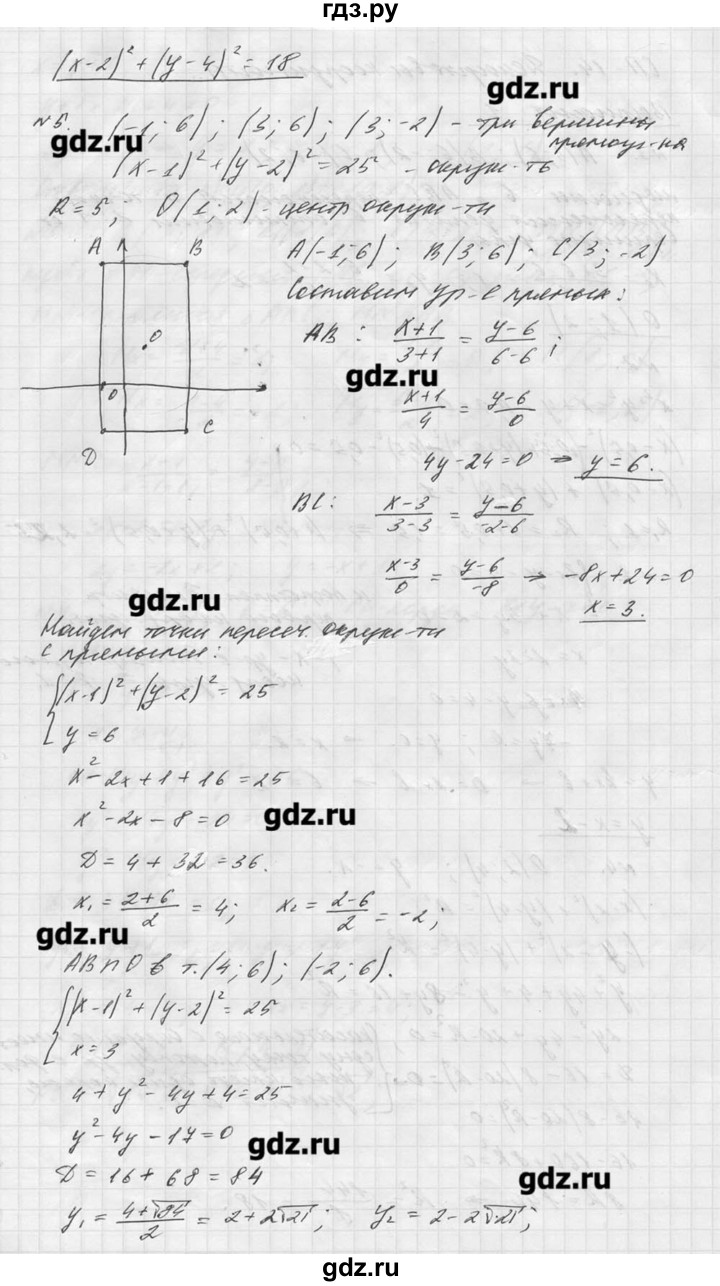 гдз.ру
(x-2)²+(y-4)²=18
gdz.ru
№5. (-1; 6); (3; 6); (3; -2) - три вершины прямоуг-ка
gdz.ru
(x-1)²+(y-2)²=25 - окруж-ть
R=5; O(1; 2) - центр окруж-ти
A B
A(-1; 6); B(3; 6); C(3; -2)
Составим ур-е прямых:
O
AB: (x+1)/(3+1) = (y-6)/(6-6);
gdz.ru
O
(x+1)/4 = (y-6)/0
D C
4y-24=0 ⇒ y=6.
BC: (x-3)/(3-3) = (y-6)/(-2-6)
(x-3)/0 = (y-6)/-8 ⇒ -8x+24=0
x=3.
gdz.ru
Найдем точки пересеч. окруж-ти
с прямыми:
{(x-1)²+(y-2)²=25
y=6
x²-2x+1+16=25
x²-2x-8=0
gdz.ru
D=4+32=36.
x₁=(2+6)/2=4; x₂=(2-6)/2=-2;
gdz.ru
AB∩O в т.(4; 6); (-2; 6).
{(x-1)²+(y-2)²=25
x=3
4+y²-4y+4=25
y²-4y-17=0
gdz.ru
D=16+68=84
gdz.ru
y₁=(4+√84)/2=2+2√21; y₂=2-2√21;
gdz.ru